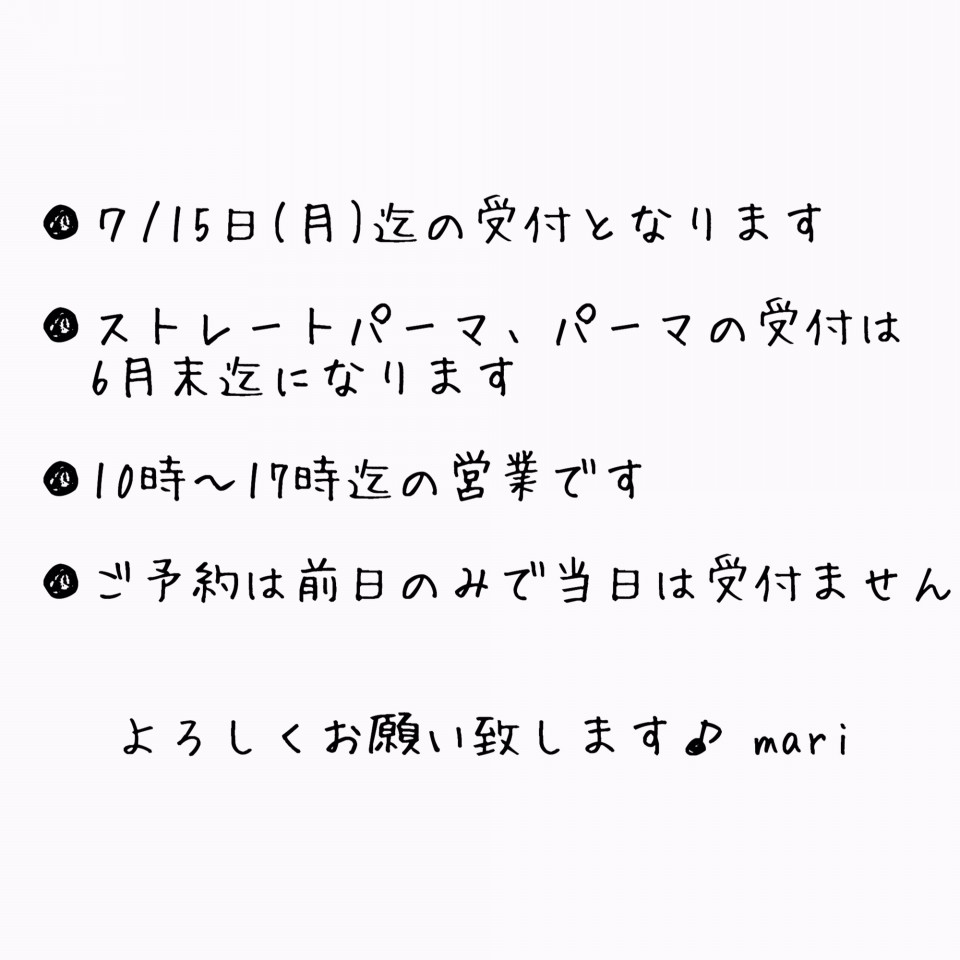 ●7/15日(月)迄の受付となります
●ストレートパーマ、パーマの受付は
6月末迄になります
●10時～17時迄の営業です
●ご予約は前日のみで当日は受付ません
よろしくお願い致します♪ mari